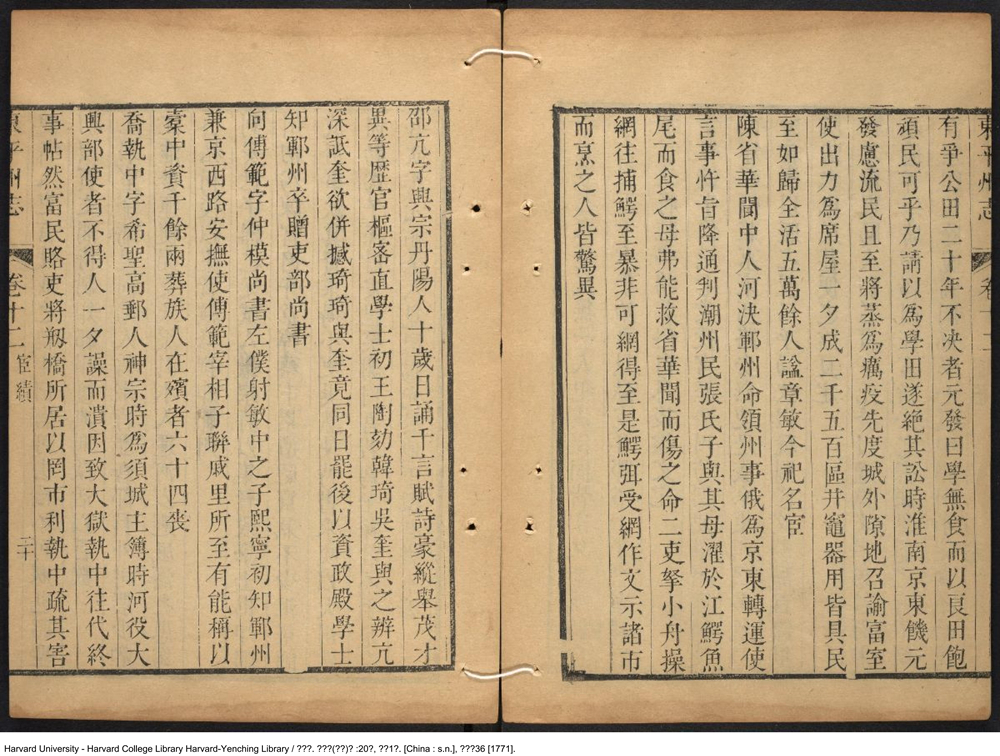 東平州志
卷十二
有爭公田二十年不決者元發曰學無食而以良田飽
頑民可乎乃請以爲學田遂絶其訟時淮南京東饑元
發慮流民且至將蒸爲癘疫先度城外隙地召諭富室
使出力爲席屋一夕成二千五百區井竈器用皆具民
至如歸全活五萬餘人諡章敏今祀名宦
陳省華閬中人河決鄆州命領州事俄爲京東轉運使
言事忤旨降通判潮州民張氏子與其母濯於江鰐魚
尾而食之母弗能救省華聞而傷之命二吏拏小舟操
網往捕鰐至暴非可網得至是鰐弭受網作文示諸市
而烹之人皆驚異
邵亢字興宗丹陽人十歲日誦千言賦詩豪縱舉茂才
異等歷官樞密直學士初王陶劾韓琦吳奎與之辨亢
深詆奎欲併撼琦琦與奎竟同日罷後以資政殿學士
知鄆州卒贈吏部尚書
向傅範字仲模尚書左僕射敏中之子熙寧初知鄆州
兼京西路安撫使傅範宰相子聯戚里所至有能稱以
橐中資千餘兩葬族人在殯者六十四喪
喬執中字希聖高郵人神宗時爲須城主簿時河役大
興部使者不得人一夕譟而潰因致大獄執中往代終
事帖然富民賂吏將刱橋所居以罔市利執中疏其害
東平州志
卷十二 宦績
二十
Harvard University - Harvard College Library Harvard-Yenching Library / ???. ???(??)? :20?, ??1?. [China : s.n.], ???36 [1771].